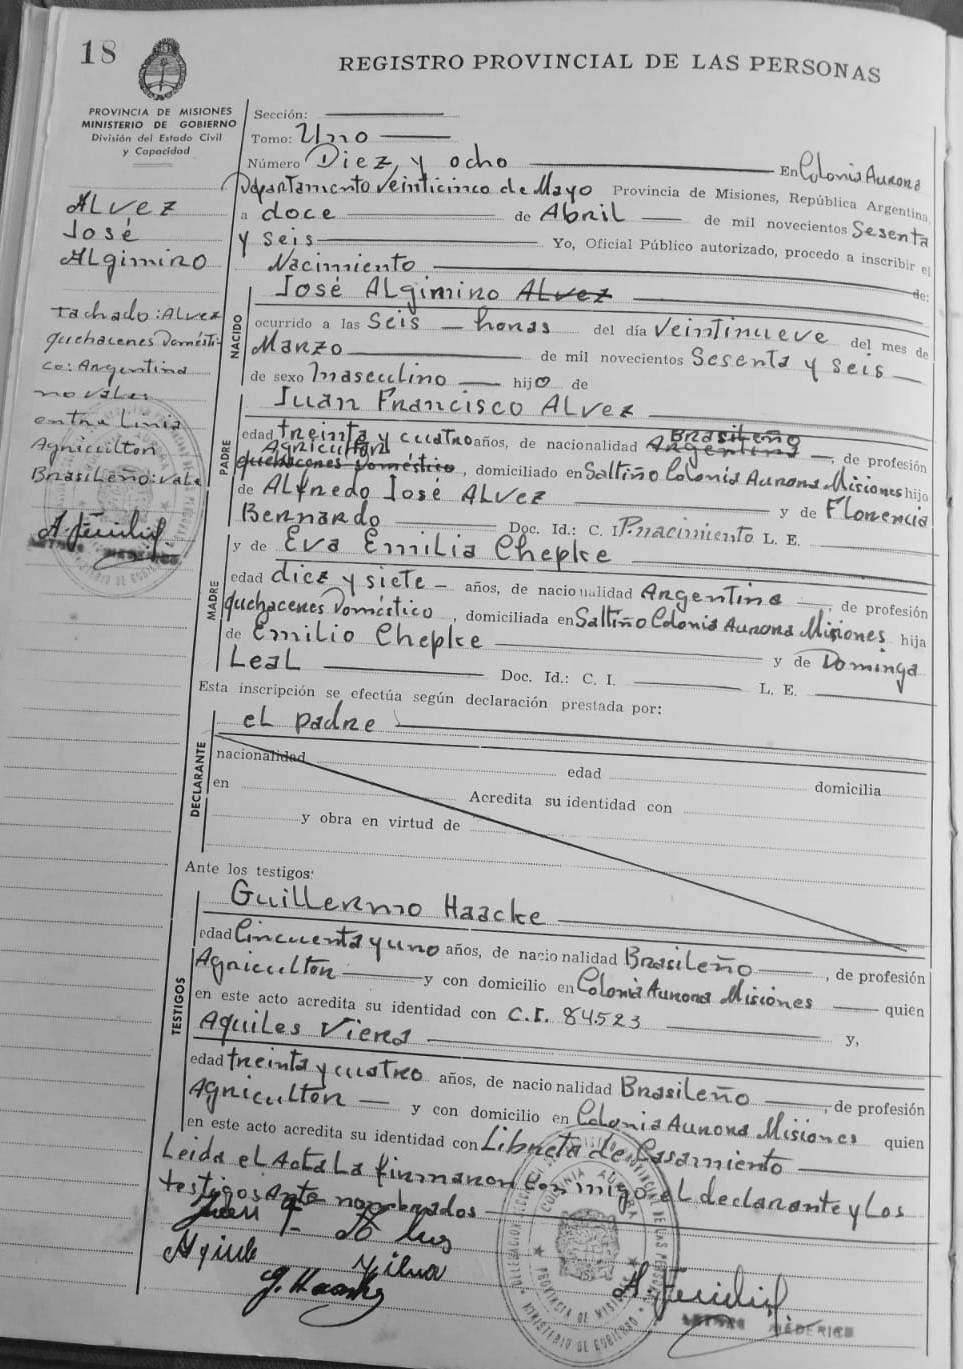 18
REGISTRO PROVINCIAL DE LAS PERSONAS
PROVINCIA DE MISIONES
MINISTERIO DE GOBIERNO
División del Estado Civil
y Capacidad
ALVEZ
José
ALgimiro
tachado: ALvez
quehaceres Domésti-
co: Argentina
no vale:
entre Linia
Agricultor
Brasileño: vale
Sección:
Tomo: Uno
Número Diez y ocho En Colonia Aurora
Departamento Veinticinco de Mayo Provincia de Misiones, República Argentina,
a doce de Abril de mil novecientos Sesenta
y seis Yo, Oficial Público autorizado, procedo a inscribir el
Nacimiento de:
NACIDO
José ALgimiro ALvez
ocurrido a las Seis horas del día Veintinueve del mes de
Marzo de mil novecientos Sesenta y seis
de sexo masculino hijo de
PADRE
Juan Francisco ALvez
Brasileño
edad treinta y cuatro años, de nacionalidad Argentina, de profesión
Agricultor
quehaceres Doméstico, domiciliado en Saltiño Colonia Aurora Misiones hijo
de ALfredo José ALvez y de Florencia
Bernardo Doc. Id.: C. I. P. nacimiento L. E.
MADRE
y de Eva Emilia Chepke
edad diez y siete años, de nacionalidad Argentina, de profesión
quehaceres Doméstico, domiciliada en Saltiño Colonia Aurora Misiones hija
de Emilio Chepke y de Dominga
Leal Doc. Id.: C. I. L. E.
Esta inscripción se efectúa según declaración prestada por:
DECLARANTE
el padre
nacionalidad edad domicilia
en Acredita su identidad con
y obra en virtud de
Ante los testigos:
TESTIGOS
Guillermo Haacke
edad Cincuenta y uno años, de nacionalidad Brasileño, de profesión
Agricultor y con domicilio en Colonia Aurora Misiones quien
en este acto acredita su identidad con C.I. 84523 y,
Aquiles Viera
edad treinta y cuatro años, de nacionalidad Brasileño, de profesión
Agricultor y con domicilio en Colonia Aurora Misiones quien
en este acto acredita su identidad con Libreta de Casamiento
Leida el Acta La firmaron conmigo el declarante y Los
testigos Ante nombrados
G. Haacke
COLONIA AURORA
PROVINCIA DE MISIONES
MINISTERIO DE GOBIERNO